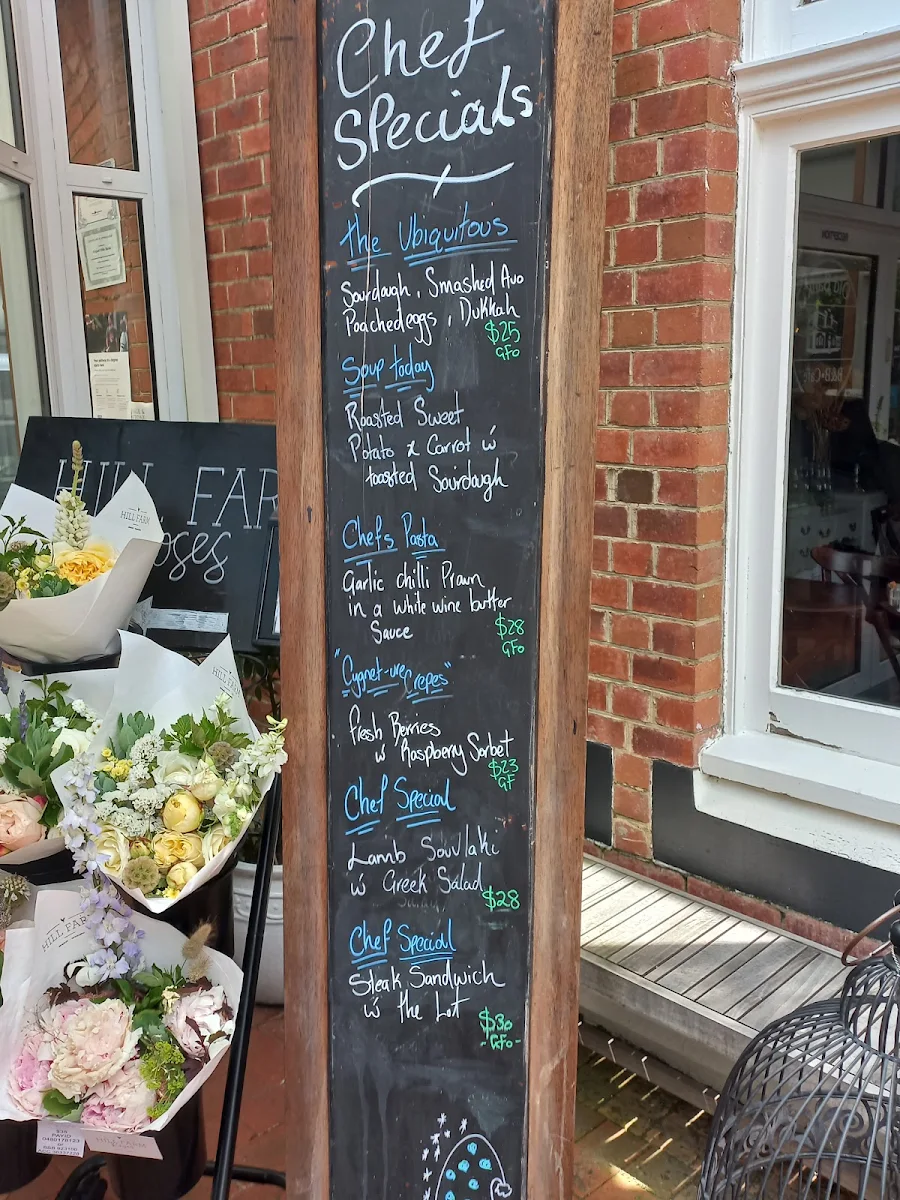 Chef
Specials
the Ubiquitous
Sourdough, Smashed Avo
Poached eggs, Dukkah
$25
GFo
Soup today
Roasted Sweet
Potato & Carrot w
toasted Sourdough
Chefs Pasta
Garlic chilli Prawn
in a white wine butter
Sauce
$28
GFo
"Cygnet-ure Crepes"
Fresh Berries
w Raspberry Sorbet
$23
GF
Chef Special
Lamb Souvlaki
w Greek Salad
$28
Chef Special
Steak Sandwich
w the Lot
$30
-GFo-
HILL FAR
oses
HILL FARM
HILL FARM
HILL FARM
$35
PAYID
RECEPTION
B&B•Cafe